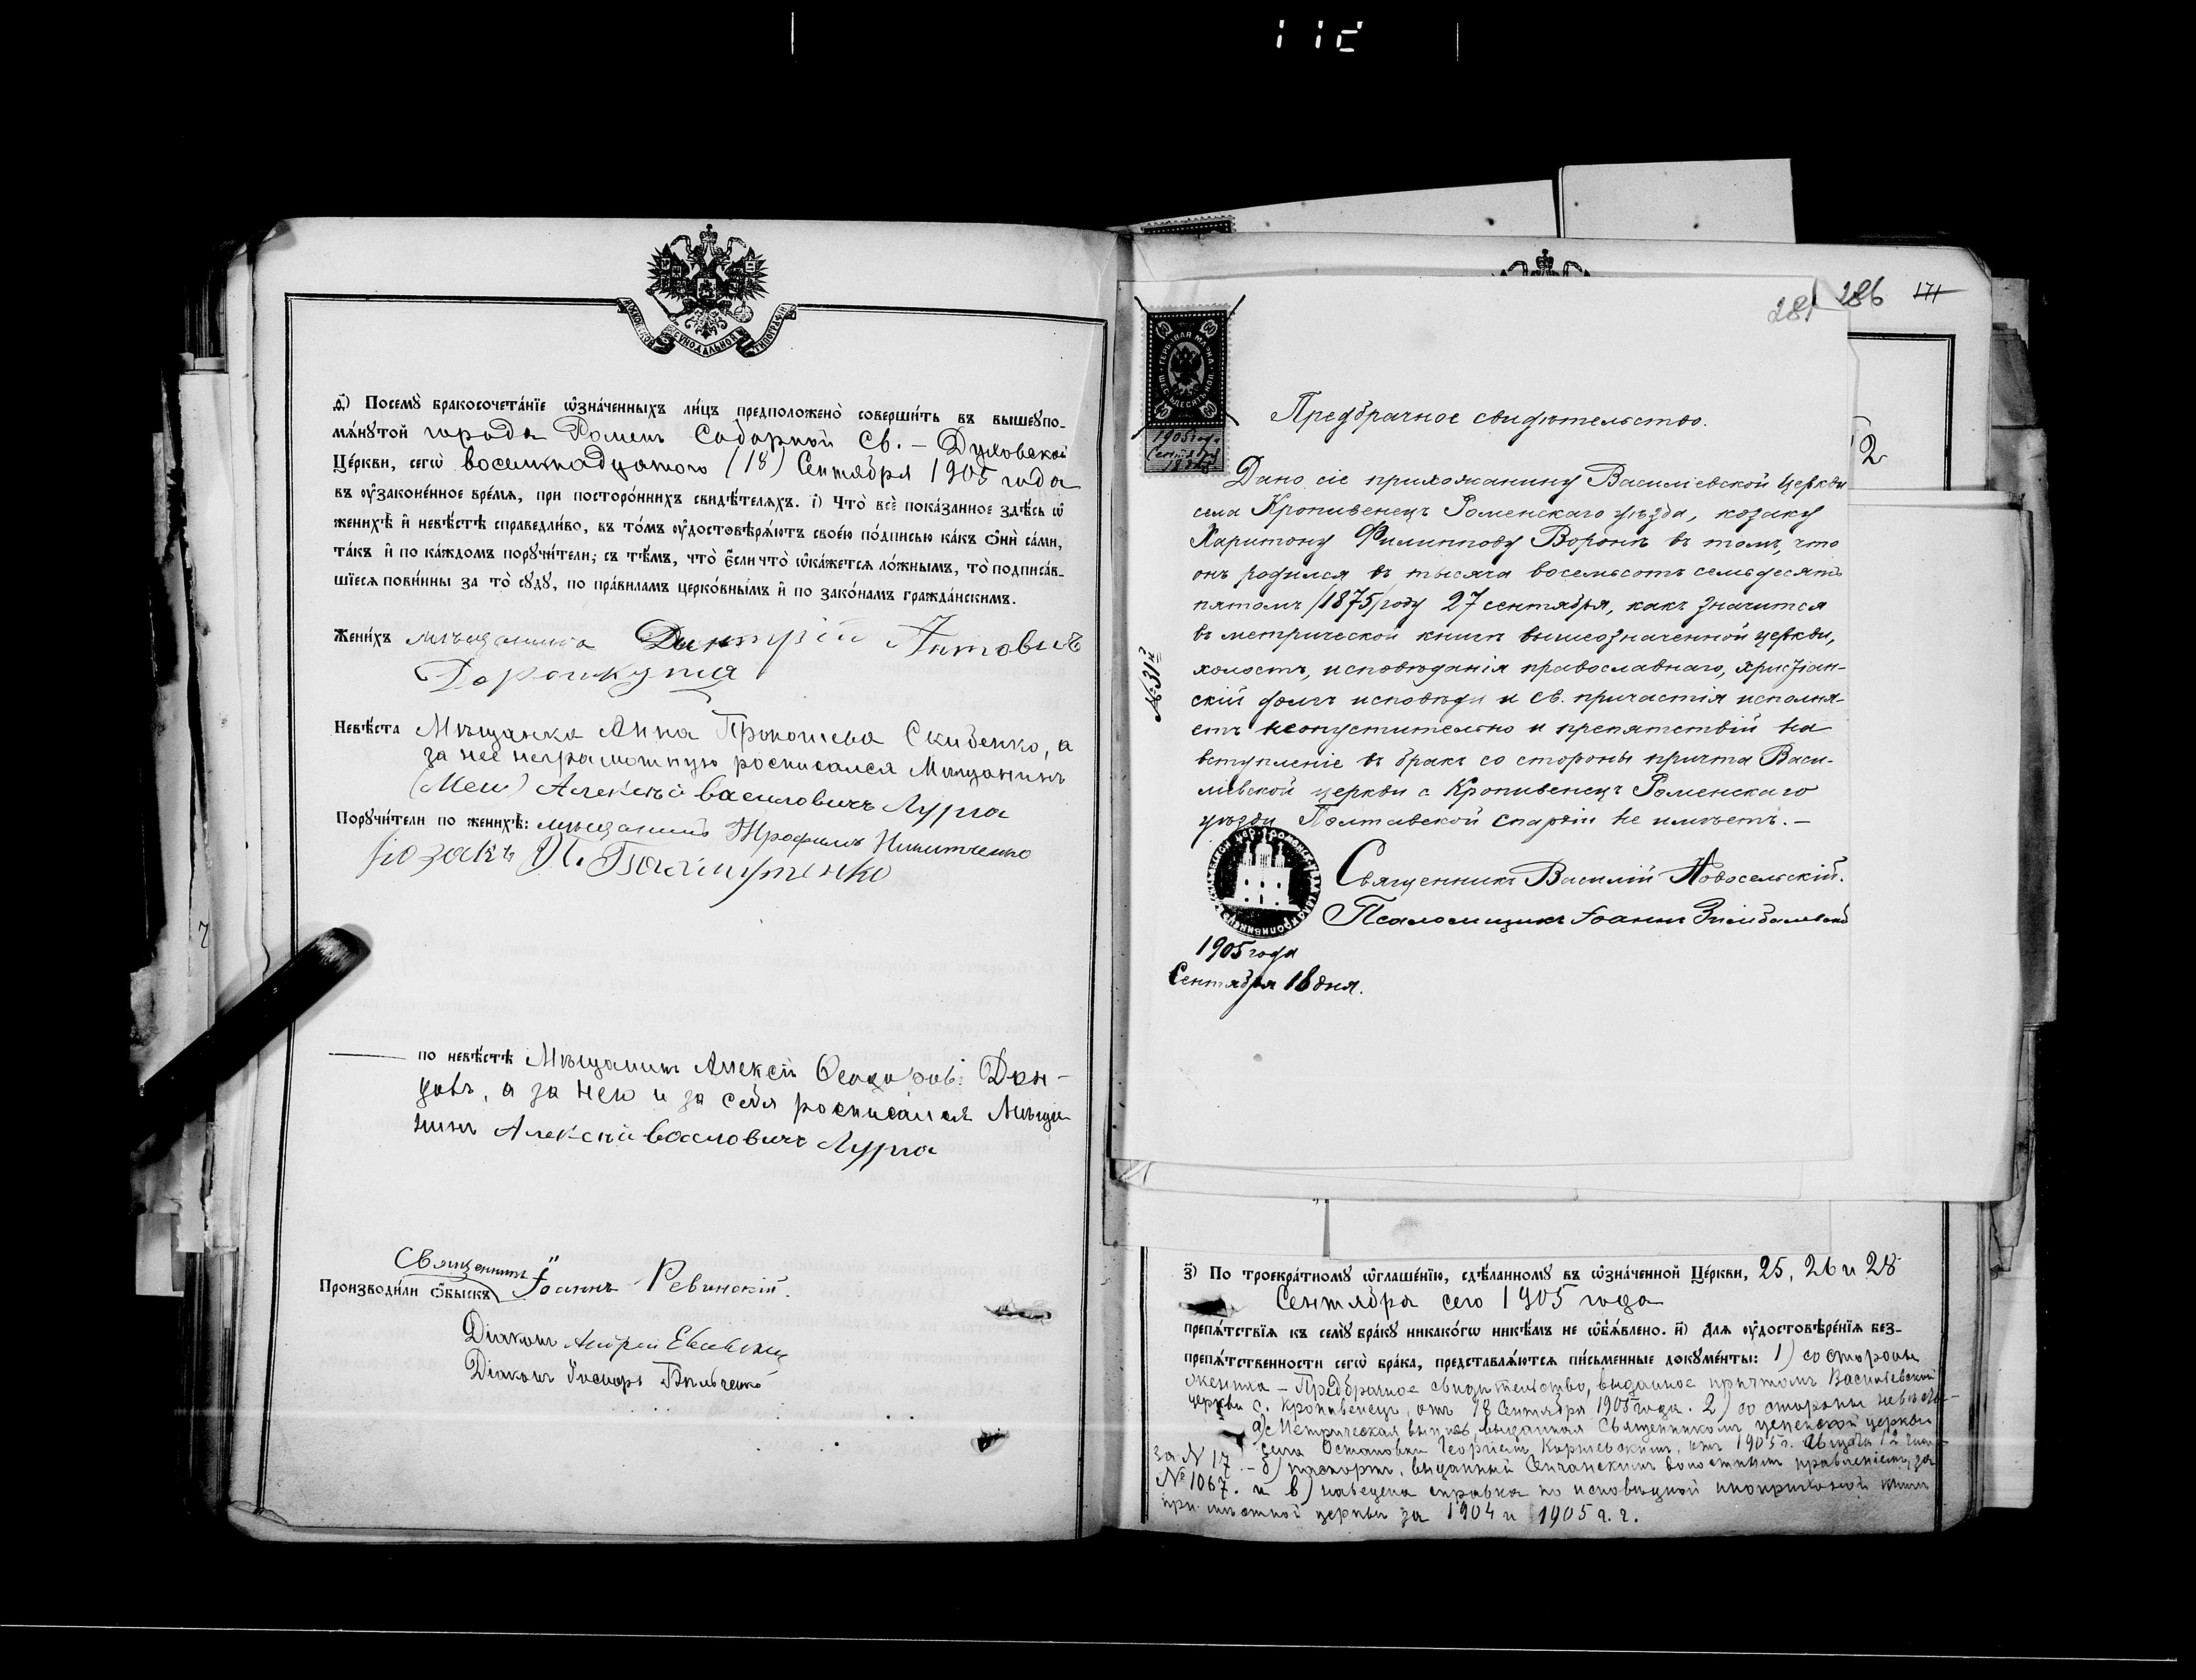 МОСКОВСКОЙ СѴНОДАЛЬНОЙ ТИПОГРАФІИ
д҃) Посемꙋ бракосочета́нїе ѡ҆зна́ченныхъ ли́цъ предположено̀ соверши́ть въ вышеꙋпо-
мѧ́нꙋтой города Роменъ Соборной Св. – Духовской
Це́ркви, сегѡ̀ восемнадцатого (18) Сентября 1905 года
въ ᲂу҆законе́нное вре́мѧ, при посторо́ннихъ свидѣ́телѧхъ. і҃) Что̀ всѐ пока́занное здѣ́сь ѡ҆
женихѣ̀ и҆ невѣ́стѣ справедли́во, въ то́мъ ᲂу҆достовѣрѧ́ютъ свое́ю по́дписью ка́къ ѻ҆нѝ са́ми,
та́къ и҆ по ка́ждомъ порꙋчи́тели; съ тѣ́мъ, что̀ є҆́сли что̀ ѡ҆ка́жетсѧ ло́жнымъ, то̀ подписа́в-
шїесѧ пови́нны за то̀ сꙋдꙋ̀, по пра́виламъ церко́внымъ и҆ по зако́намъ гражда́нскимъ.
Жени́хъ мѣщанинъ Дмитрій
Невѣ́ста Мѣщанка Анна Прокопіева Скибенко, а
за нее неграмотную росписался Мѣщанинъ
Алексѣй Василовичъ Лурга
Порꙋчи́тели по женихѣ̀: мѣщанинъ Трофимъ Никитченко
козакъ П.
по невѣ́стѣ Мѣщанинъ Алексій Ѳеодоров: Дон-
цовъ, а за него и за себя росписался Мѣща
нинъ Алексѣй Василовичъ Лурга
Священникъ
Производи́ли ѻ҆́быскъ Іоаннъ Ревинскій.
Діаконъ Андрей
Діаконъ
281 286 171
2
ГЕРБОВАЯ МАРКА
ШЕСТЬДЕСЯТЪ КОП.
60
1905 года
Сентября
18 дня
Предбрачное свидѣтельство.
Дано сіе прихожанину Василіевской церкви
села Кропивенецъ Роменскаго уѣзда, козаку
Харитону Филиппову Воронѣ въ томъ, что
онъ родился въ тысяча восемьсотъ семьдесятъ
пятомъ /1875/ году 27 сентября, какъ значится
въ метрической книгѣ вышеозначенной церкви,
холостъ, исповѣданія православнаго, христіан-
скій долгъ исповѣди и св. причастія исполня-
етъ неопустительно и препятствій на
вступленіе въ бракъ со стороны причта Васи-
ліевской церкви с. Кропивенецъ Роменскаго
уѣзда Полтавской Епархіи не имѣетъ. –
№ 31
Священникъ Василій Новосельскій.
Псаломщикъ Іоаннъ
1905 года
Сентября 18 дня.
з҃) По троекра́тномꙋ ѡ҆глаше́нїю, сдѣ́ланномꙋ въ ѡ҆зна́ченной Це́ркви, 25, 26 и 28
Сентября сего 1905 года
препѧ́тствїѧ къ семꙋ̀ бра́кꙋ никако́гѡ никѣ́мъ не ѡ҆бъѧ́влено. и҃) Длѧ ᲂу҆достовѣре́нїѧ без-
препѧ́тственности сегѡ̀ бра́ка, представлѧ́ютсѧ пи́сьменные докꙋме́нты: 1) со стороны
жениха – Предбрачное свидѣтельство, выданное причтомъ Василіевской
церкви с. Кропивенецъ, отъ 18 Сентября 1905 года. 2) со стороны невѣсты –
а) Метрическая выпись, выданная Священникомъ церкви
села Остаповки Георгіемъ отъ 1905 г. Августа 12
за № 17. – б) паспортъ, выданный Сенчанскимъ волостнымъ правленіемъ, за
№ 1067. и в) наведена справка по исповѣдной книгѣ
при церкви за 1904 и 1905 г. г.